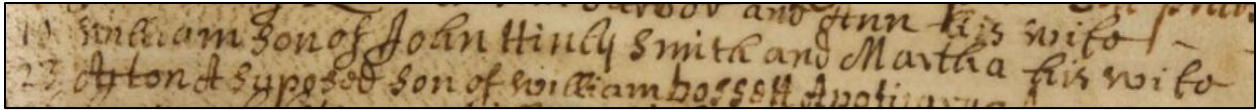 and Ann his wife
19 William son of John Hinly Smith and Martha his wife
23 Ayton A suposed son of william bossett Apoticary